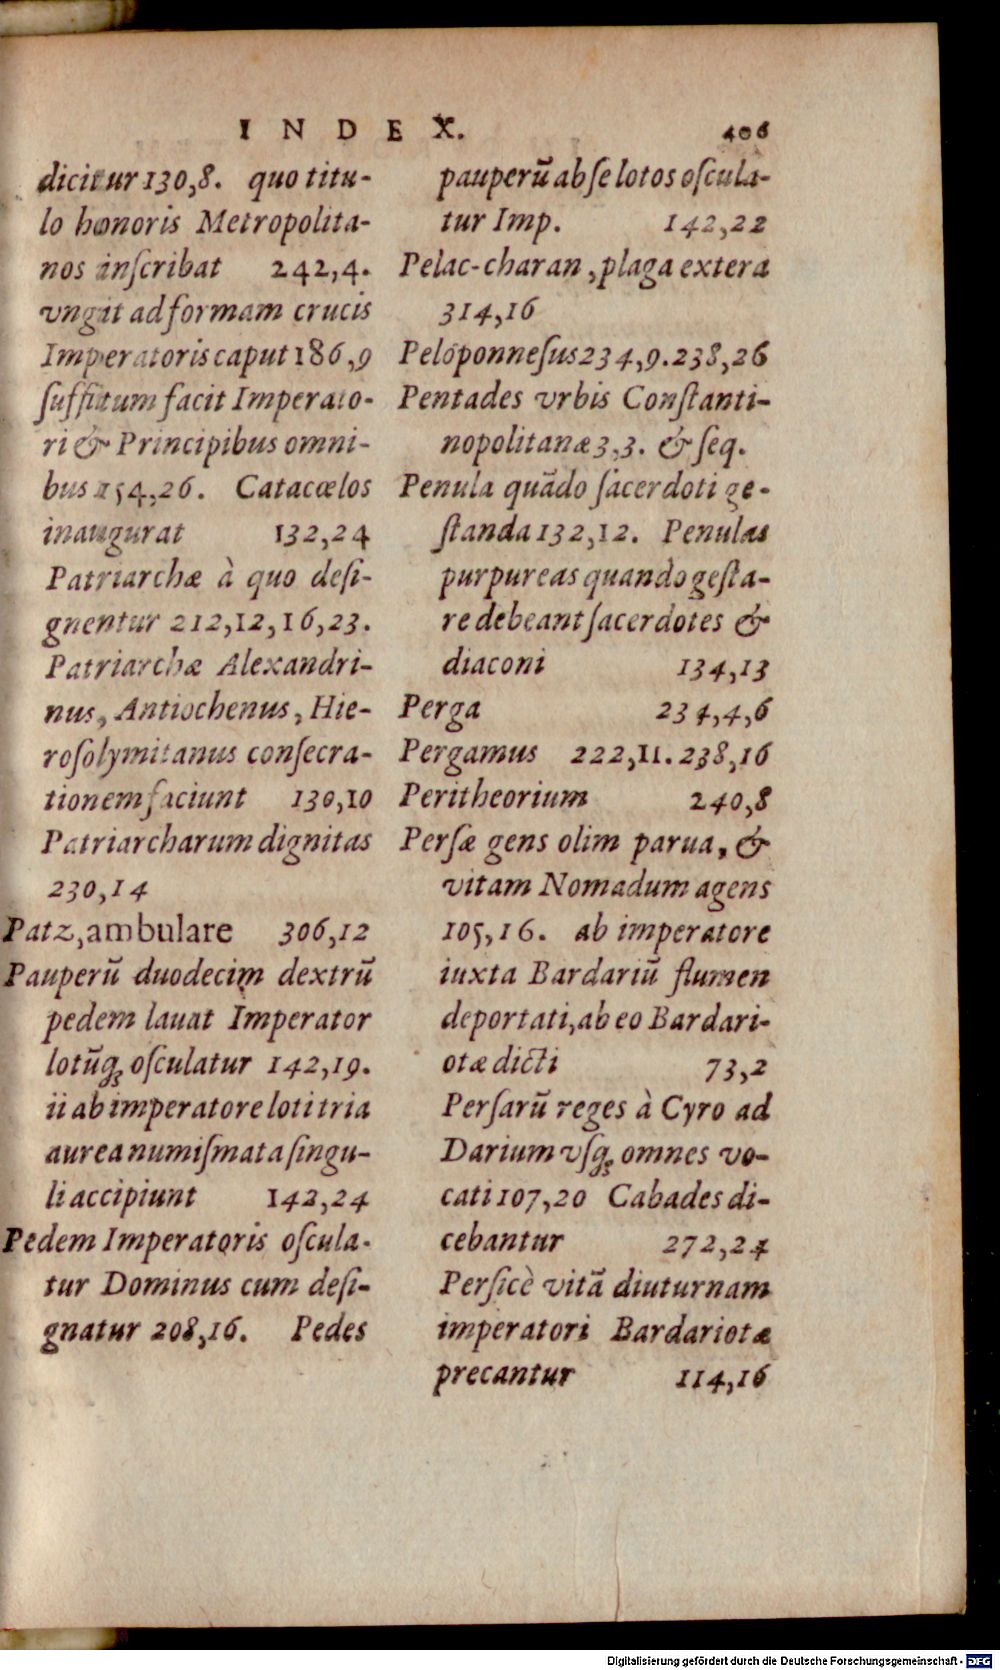 INDEX. 406
dicitur 130,8. quo titu-
lo honoris Metropolita-
nos inſcribat 242,4.
vngit ad formam crucis
Imperatoris caput 186,9
ſuffitum facit Imperato-
ri & Principibus omni-
bus 154,26. Catacœlos
inaugurat 132,24
Patriarchæ à quo deſi-
gnentur 212,12,16,23.
Patriarchæ Alexandri-
nus, Antiochenus, Hie-
roſolymitanus conſecra-
tionem faciunt 130,10
Patriarcharum dignitas
230,14
Patz, ambulare 306,12
Pauperũ duodecim dextrũ
pedem lauat Imperator
lotũq; oſculatur 142,19.
ii ab imperatore loti tria
aurea numiſmata ſingu-
li accipiunt 142,24
Pedem Imperatoris oſcula-
tur Dominus cum deſi-
gnatur 208,16. Pedes
pauperũ ab ſe lotos oſcula-
tur Imp. 142,22
Pelac-charan, plaga extera
314,16
Peloponneſus 234,9. 238,26
Pentades vrbis Conſtanti-
nopolitanæ 3,3. & ſeq.
Penula quãdo ſacerdoti ge-
ſtanda 132,12. Penulas
purpureas quando geſta-
re debeant ſacerdotes &
diaconi 134,13
Perga 234,4,6
Pergamus 222,11. 238,16
Peritheorium 240,8
Perſæ gens olim parua, &
vitam Nomadum agens
105,16. ab imperatore
iuxta Bardariũ flumen
deportati, ab eo Bardari-
otæ dicti 73,2
Perſarũ reges à Cyro ad
Darium vſq; omnes vo-
cati 107,20 Cabades di-
cebantur 272,24
Perſicè vitã diuturnam
imperatori Bardariotæ
precantur 114,16
Digitalisierung gefördert durch die Deutsche Forschungsgemeinschaft - DFG